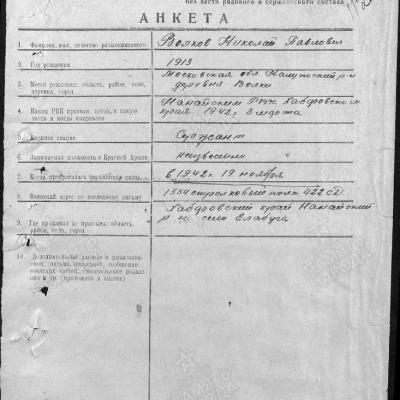 без вести рядового и сержантского состава
АНКЕТА
1. Фамилия, имя, отчество разыскиваемого
Волков Николай Павлович
2. Год рождения
1913
3. Место рождения: область, район, село, деревня, город
Московская обл.
деревня Волки
4. Каким РВК призван, когда, в какую часть и когда направлен
Нанайским РВК Хабаровского
края 1942 г. 3 марта
5. Воинское звание
Сержант
6. Занимаемая должность в Красной Армии
неизвестно
7. Когда прекратилась письменная связь
в 1942 г. 19 ноября
8. Воинский адрес по последнему письму
1334 стрелковый полк 422 СД
9. Где проживал до призыва: область, район, село, город
Хабаровский край Нанайский
р-н село Елабуга
10. Дополнительные данные о разыскиваемом: письма товарищей, сообщения воинских частей, свидетельские показания и др. (приложить к анкете)
ПАМЯТЬ НАРОДА